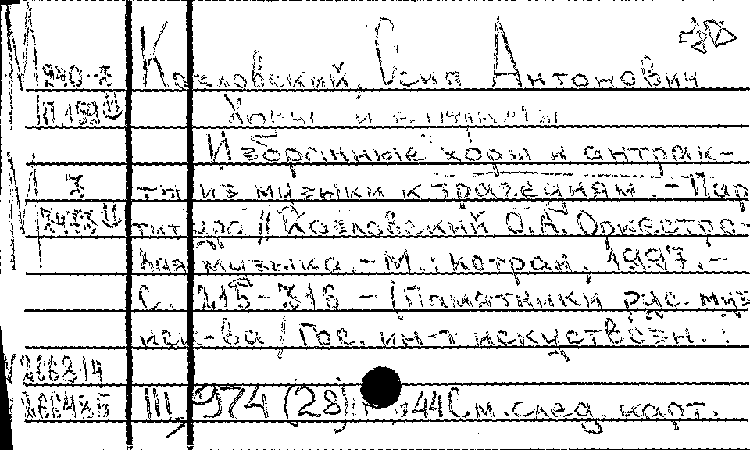 Козловский, Осип Антонович
Хоры и антракты
Избранные хоры и антрак-
ты из музыки к трагедиям. - Пар
титура // Козловский О.А. Оркестро-
вая музыка. - М.: Котран, 1997. -
С. 215-316 - (Памятники рус. муз
иск-ва / Гос. ин-т искусствозн. :
III 974 (28) См. след. карт.